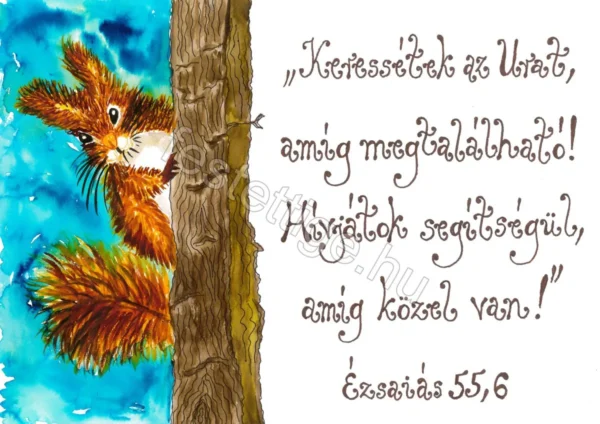 „Keressétek az Urat,
amíg megtalálható!
Hívjátok segítségül,
amíg közel van!”
Ézsaiás 55,6
festettige.hu